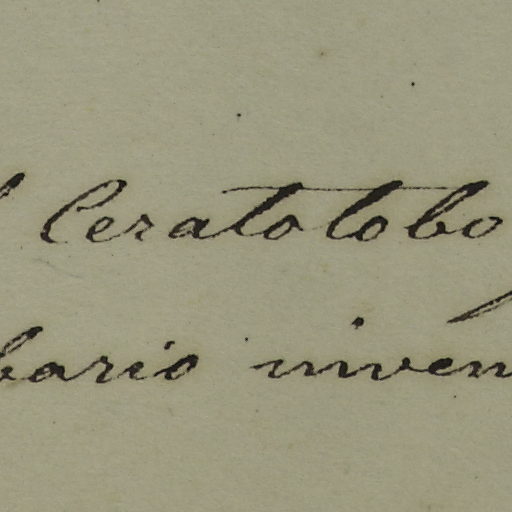 Ceratolobo
bario inven